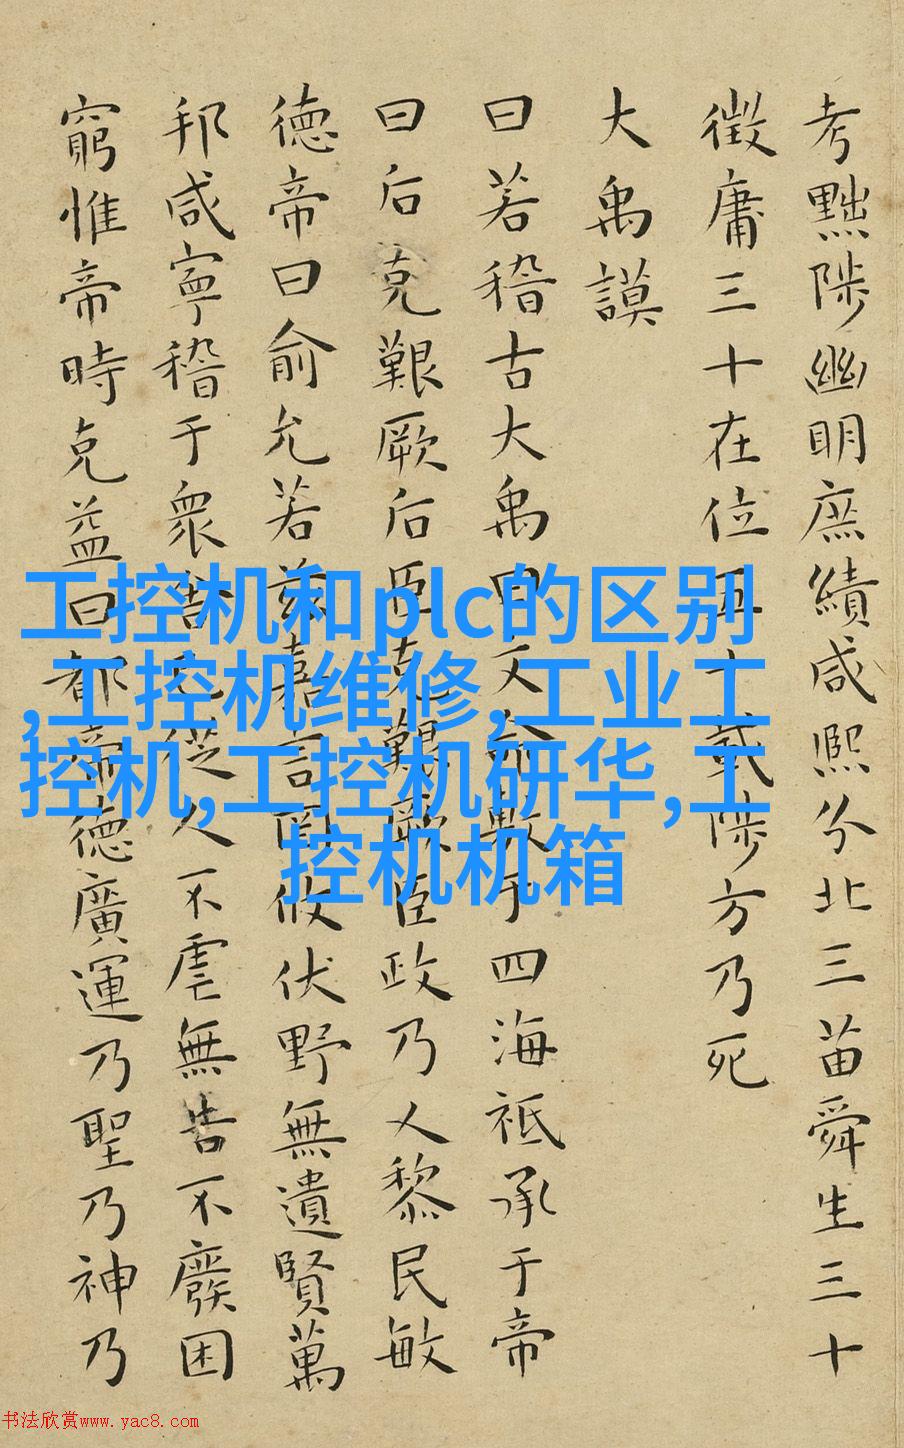 考黜陟幽明庶績咸熙分北三苗舜生三十
徵庸三十在位五十載陟方乃死
大禹謨
曰若稽古大禹曰文命敷于四海祗承于帝
曰后克艱厥后臣克艱厥臣政乃乂黎民敏
德帝曰俞允若茲嘉言罔攸伏野無遺賢萬
邦咸寧稽于眾舍己從人不虐無告不廢困
窮惟帝時克益曰都帝德廣運乃聖乃神乃
工控机和plc的区别
,工控机维修,工业工
控机,工控机研华,工
控机机箱
书法欣赏www.yac8.com